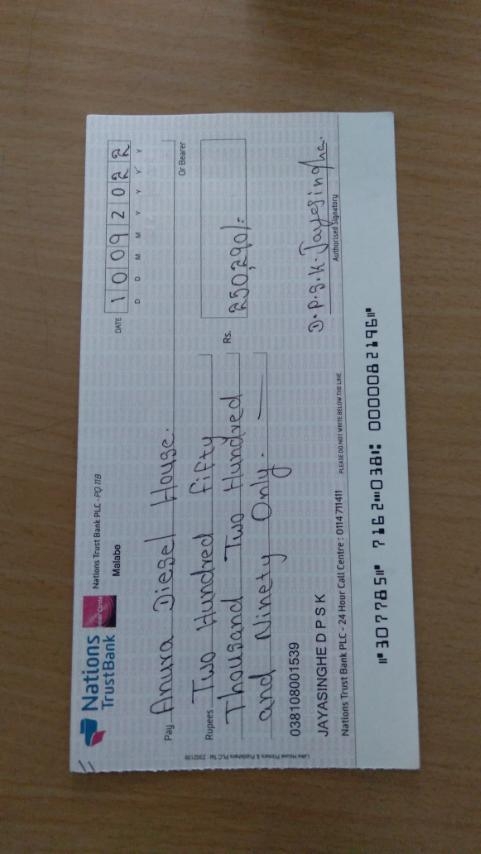 Nations
TrustBank
Nations Trust Bank PLC - PQ 11B
Malabe
DATE 10092022
D D M M Y Y Y Y
Pay Anura Diesel House.
Or Bearer
Rupees Two Hundred Fifty
Thousand Two Hundred
and Ninety Only.
Rs. 250,290/-
038108001539
JAYASINGHE D P S K
D.P.S.K. Jayasingha.
Authorised Signatory
Nations Trust Bank PLC - 24 Hour Call Centre : 0114 711411
PLEASE DO NOT WRITE BELOW THIS LINE
⑈307785⑈ 7162⑉038⑆ 0000082196⑈